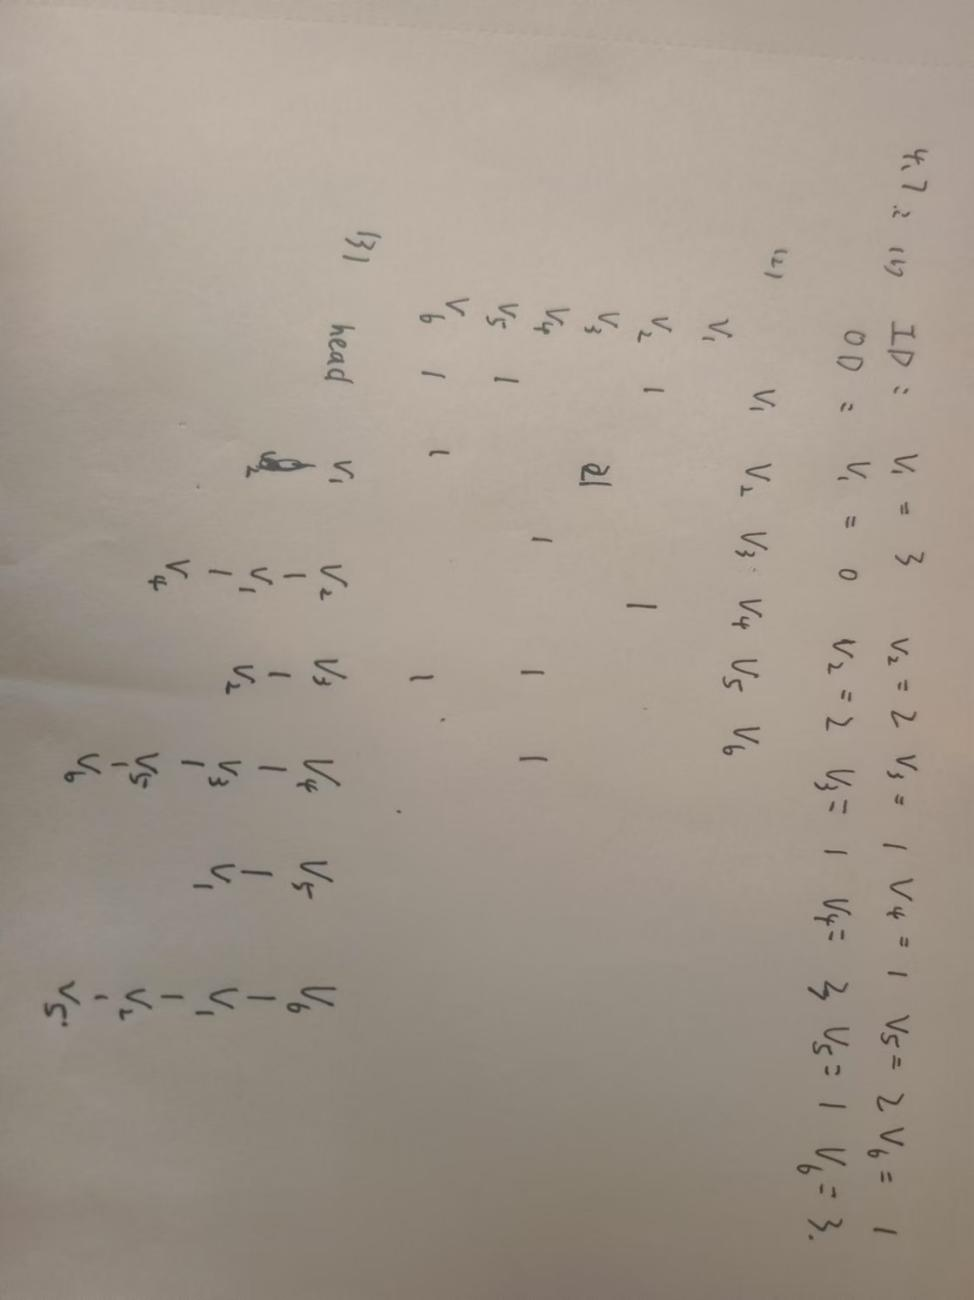 4.7: (1) ID: V1 = 3 V2 = 2 V3 = 1 V4 = 1 V5 = 2 V6 = 1
OD = V1 = 0 V2 = 2 V3 = 1 V4 = 3 V5 = 1 V6 = 3.
(2) V1 V2 V3 V4 V5 V6
V1
V2 1 1
V3 1
V4 1 1 1
V5 1
V6 1 1 1
(3) head V1 V2 V3 V4 V5 V6
V1 V2 V3 V1 V1
V4 V5 V2
V6 V5